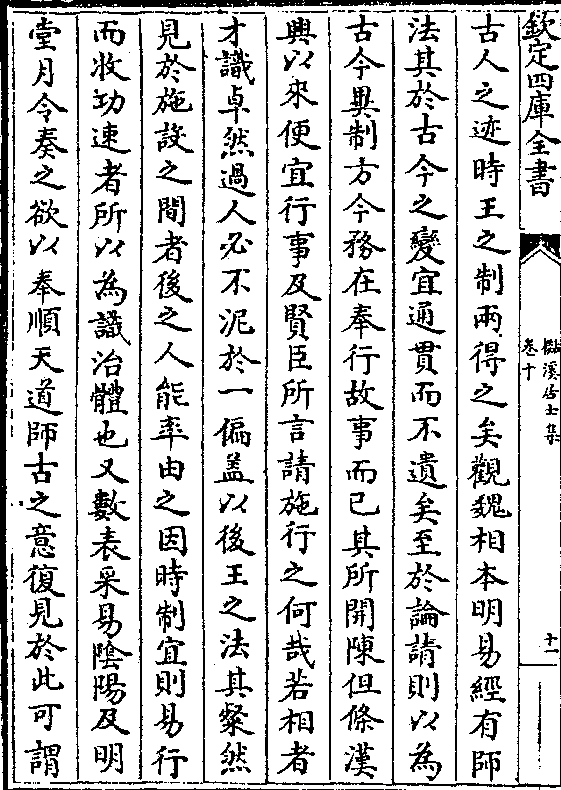 欽定四庫全書
檆溪居士集
卷十
十一
古人之迹時王之制兩得之矣觀魏相本明易經有師
法其於古今之變宜通貫而不遺矣至於論請則以為
古今異制方今務在奉行故事而已其所開陳但條漢
興以來便宜行事及賢臣所言請施行之何哉若相者
才識卓然過人必不泥於一偏盖以後王之法其粲然
見於施設之間者後之人能率由之因時制宜則易行
而收功速者所以為識治體也又數表采易隂陽及明
堂月令奏之欲以奉順天道師古之意復見於此可謂